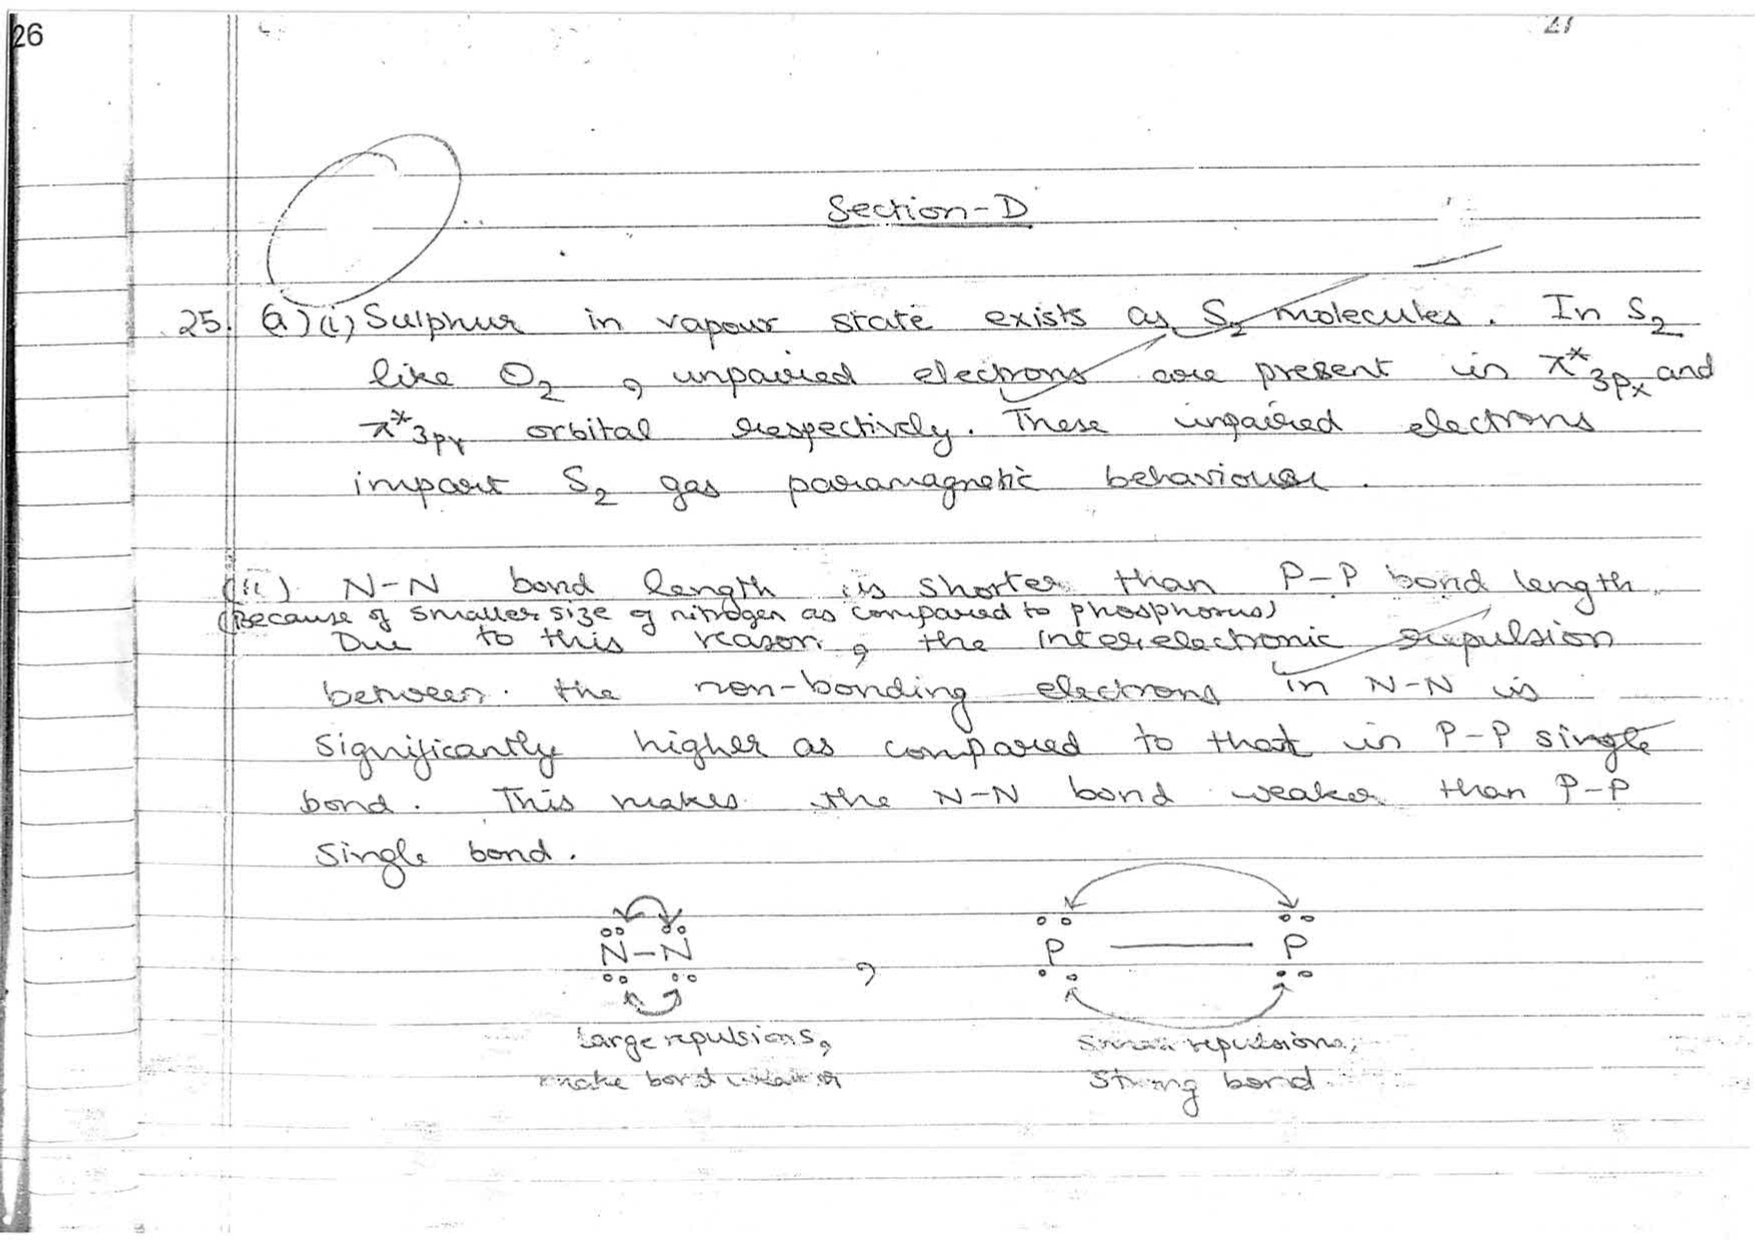 26
21
Section-D
25. (a) (i) Sulphur in vapour state exists as S₂ molecules. In S₂
like O₂, unpaired electrons are present in π*3pₓ and
π*3pᵧ orbital respectively. These unpaired electrons
impart S₂ gas paramagnetic behaviour.
(ii) N-N bond length is shorter than P-P bond length
(Because of smaller size of nitrogen as compared to phosphorus)
Due to this reason, the interelectronic repulsion
between the non-bonding electrons in N-N is
significantly higher as compared to that in P-P single
bond. This makes the N-N bond weaker than P-P
single bond.
N-N , P — P
Large repulsions, Small repulsions,
make bond weaker Strong bond